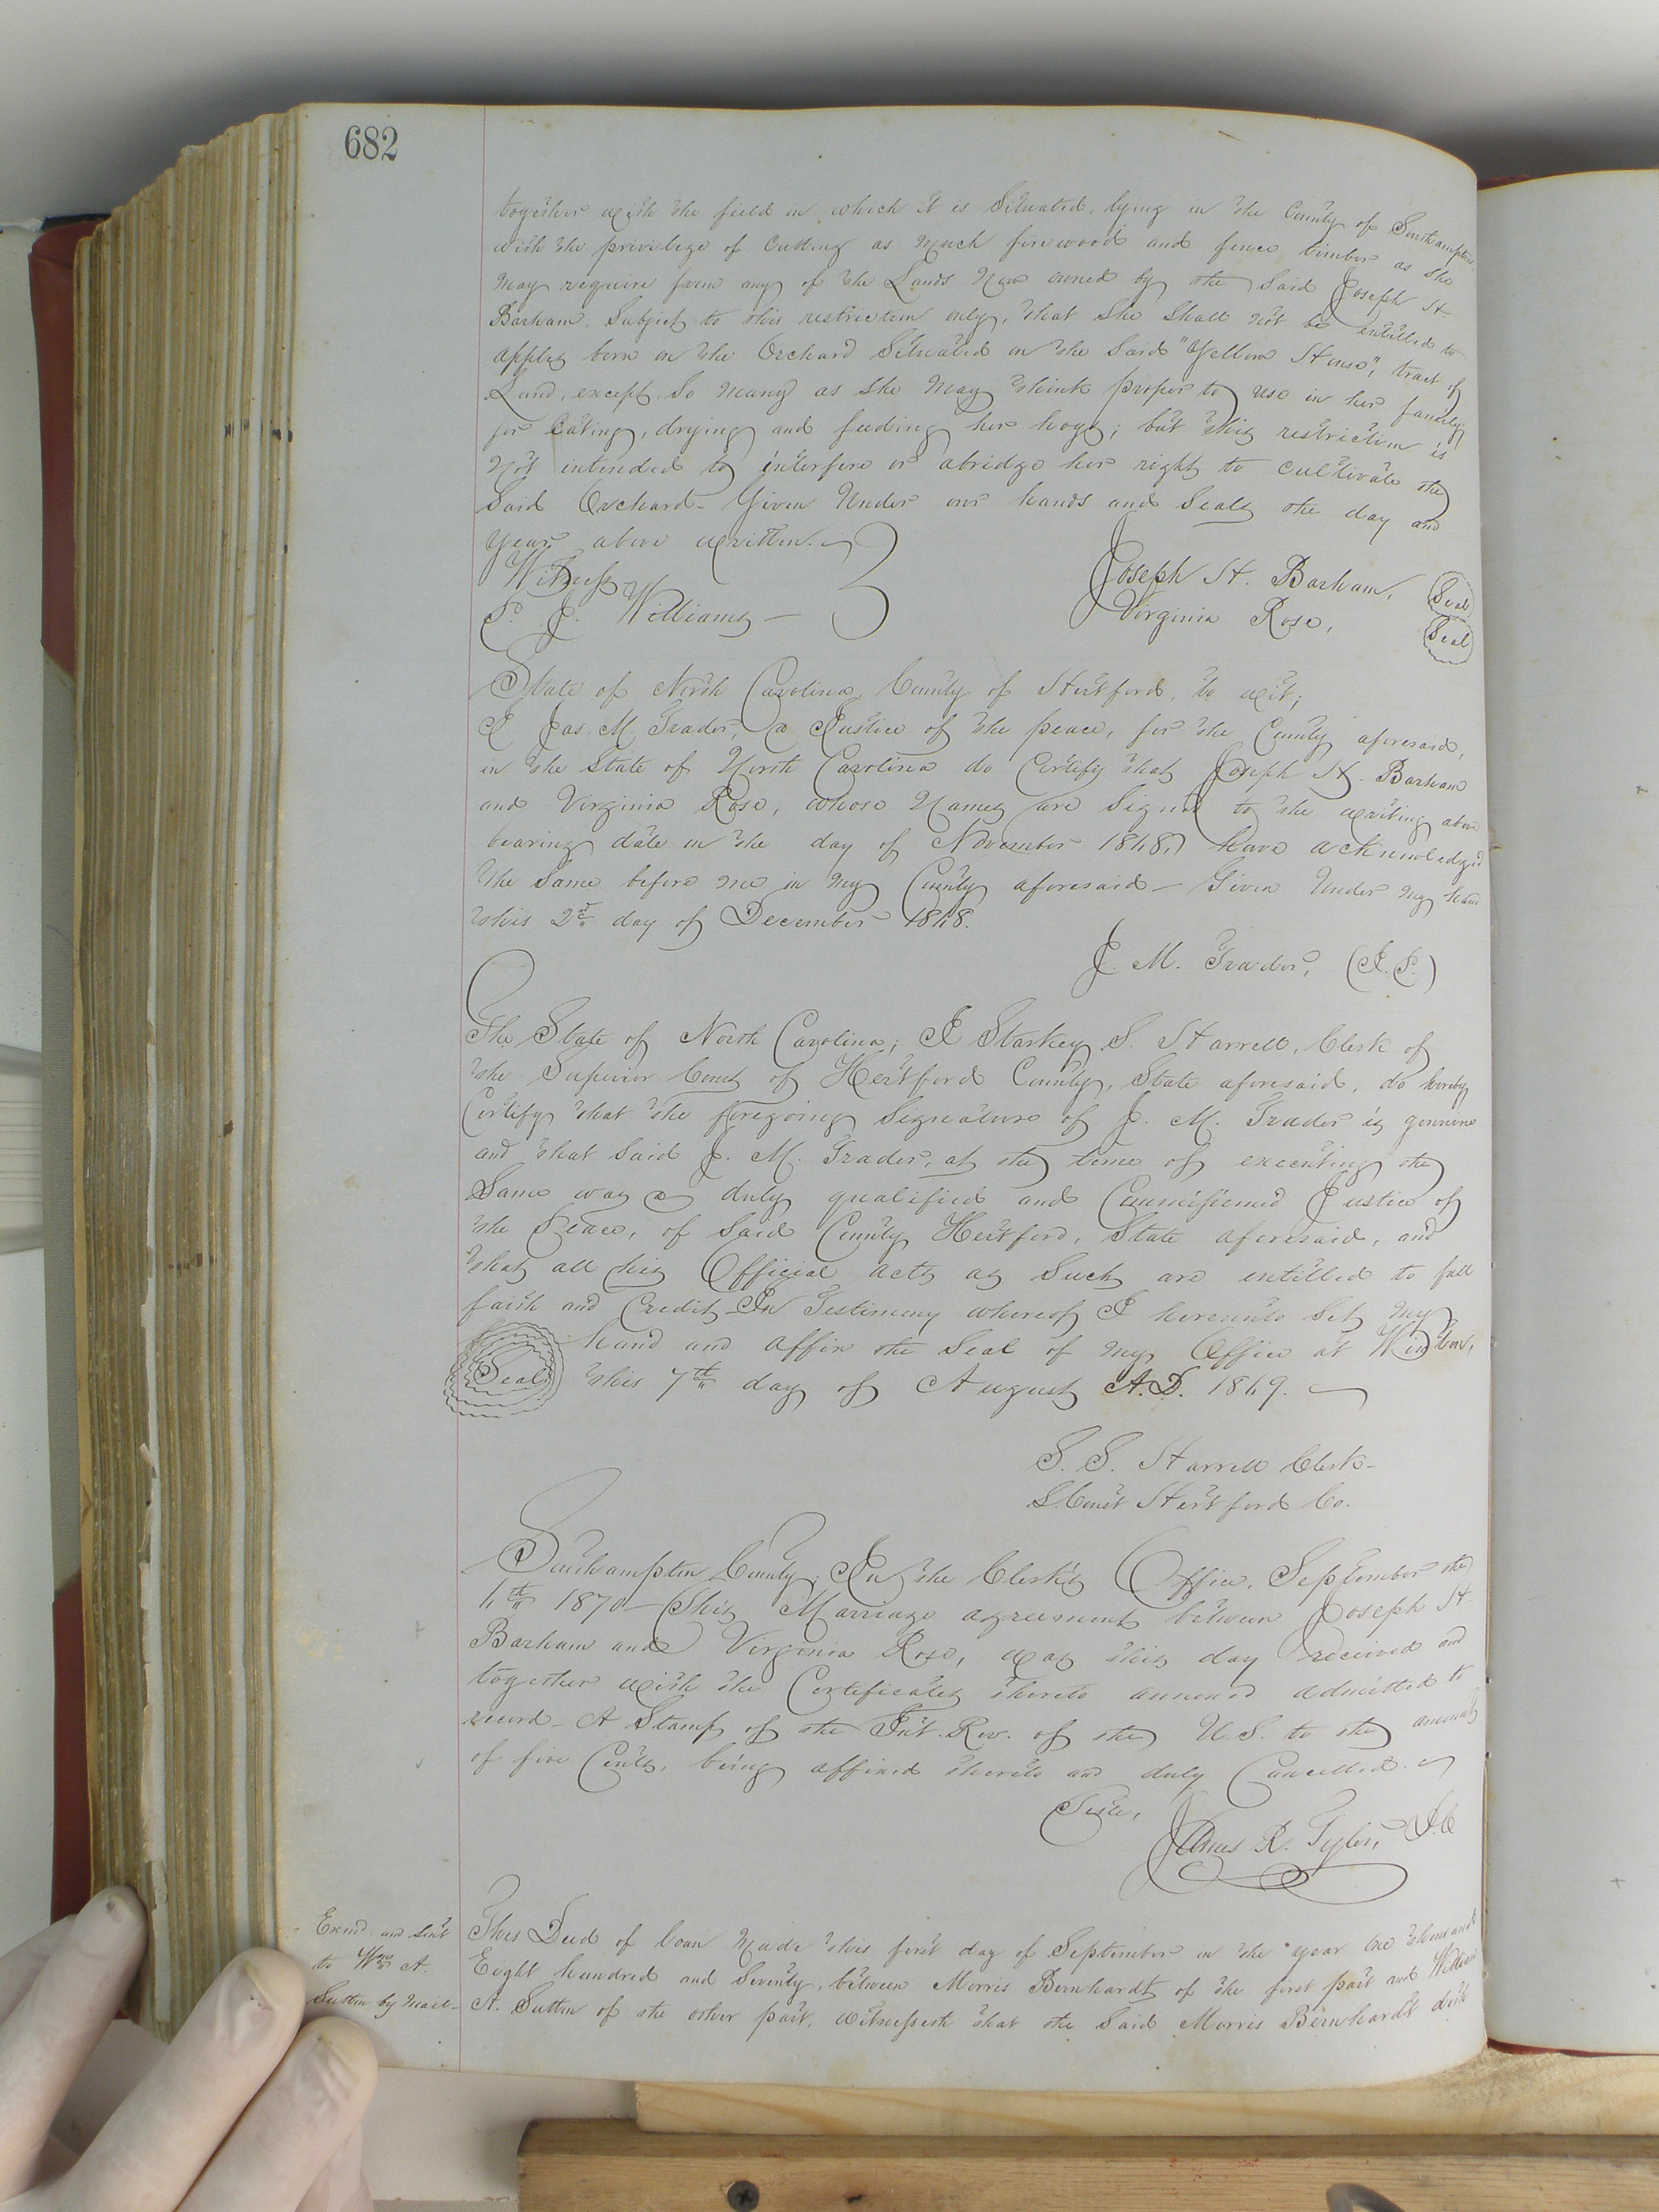 682
together with the field in which it is Situated, lying in the County of Southampton,
with the privilege of Cutting as Much fire wood and fence timber as She
May require from any of the Lands Now owned by the Said Joseph H.
Barham, Subject to this restriction only, that She Shall Not be entitled to
apples born on the Orchard Situated on the Said "Yellow House", tract of
Land, except So Many as She May think proper to use in her family
for Eating, drying and feeding her hogs; but this restriction is
Not intended to interfere or abridge her right to cultivate the
Said Orchard - Given Under our hands and Seals the day and
Year above written.
Witness
P. J. Williams -
Joseph H. Barham, Seal
Virginia Rose, Seal
State of North Carolina, County of Hertford, to wit;
I Jas. M. Trader, a Justice of the peace, for the County aforesaid,
in the State of North Carolina do Certify that Joseph H. Barham
and Virginia Rose, whose Names are Signed to the writing above
bearing date on the day of November 1868, have acknowledged
the Same before me in My County aforesaid - Given Under my hand
this 2nd day of December 1868.
J. M. Trader, (J. P.)
The State of North Carolina; I Starkey S. Harrell, Clerk of
the Superior Court of Hertford County, State aforesaid, do hereby
Certify that the foregoing Signature of J. M. Trader is genuine
and that Said J. M. Trader, at the time of executing the
Same was a duly qualified and Commissioned Justice of
the Peace, of Said County Hertford, State aforesaid, and
that all his Official acts as Such are entitled to full
faith and Credit - In Testimony whereof I hereunto Set my
hand and affix the Seal of my Office at Winton,
Seal this 7th day of August A.D. 1869.
S. S. Harrell Clerk -
S. Court Hertford Co.
Southampton County; In the Clerk's Office, September the
6th 1870 - This Marriage agreement between Joseph H.
Barham and Virginia Rose, was this day received and
together with the Certificates thereto annexed admitted to
record - A Stamp of the Int. Rev. of the U.S. to the amount
of five Cents, being affixed thereto and duly Cancelled.
Teste,
James R. Tyler, D.C
Exmd and Sent
to Wm A.
Sutton by Mail -
This Deed of loan Made this first day of September in the year One thousand
Eight hundred and Seventy, between Morris Bernhardt of the first part and William
A. Sutton of the other part, witnesseth that the Said Morris Bernhardt doth